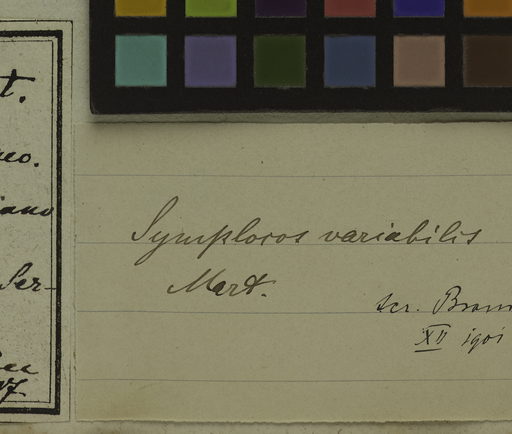 t.
Ser-
Symplocos variabilis
Mart.
scr. Bran
XII 1901